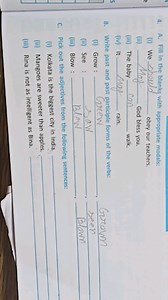 A. Fill in the blanks with appropriate modals:
(i) We should obey our teachers.
(ii) May God bless you.
(iii) The baby can walk.
(iv) It may rain.
B. Write past and past participle forms of the verbs:
(i) Grow : Grew Grown
(ii) See : Saw Seen
(iii) Blow : Blew Blown
C. Pick out the adjectives from the following sentences:
(i) Kolkata is the biggest city in India.
(ii) Mangoes are sweeter than apples.
(iii) Rina is not as intelligent as Bina.